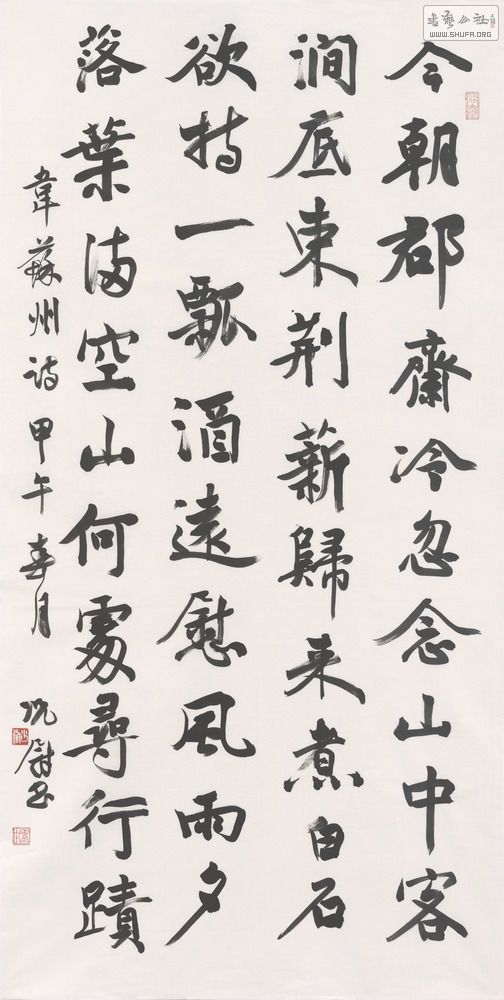 書藝公社
WWW.SHUFA.ORG
今朝郡齋冷忽念山中客
澗底束荆薪歸来煮白石
欲持一瓢酒遠慰風雨夕
落葉满空山何處尋行蹟
韋蘇州詩甲午春月